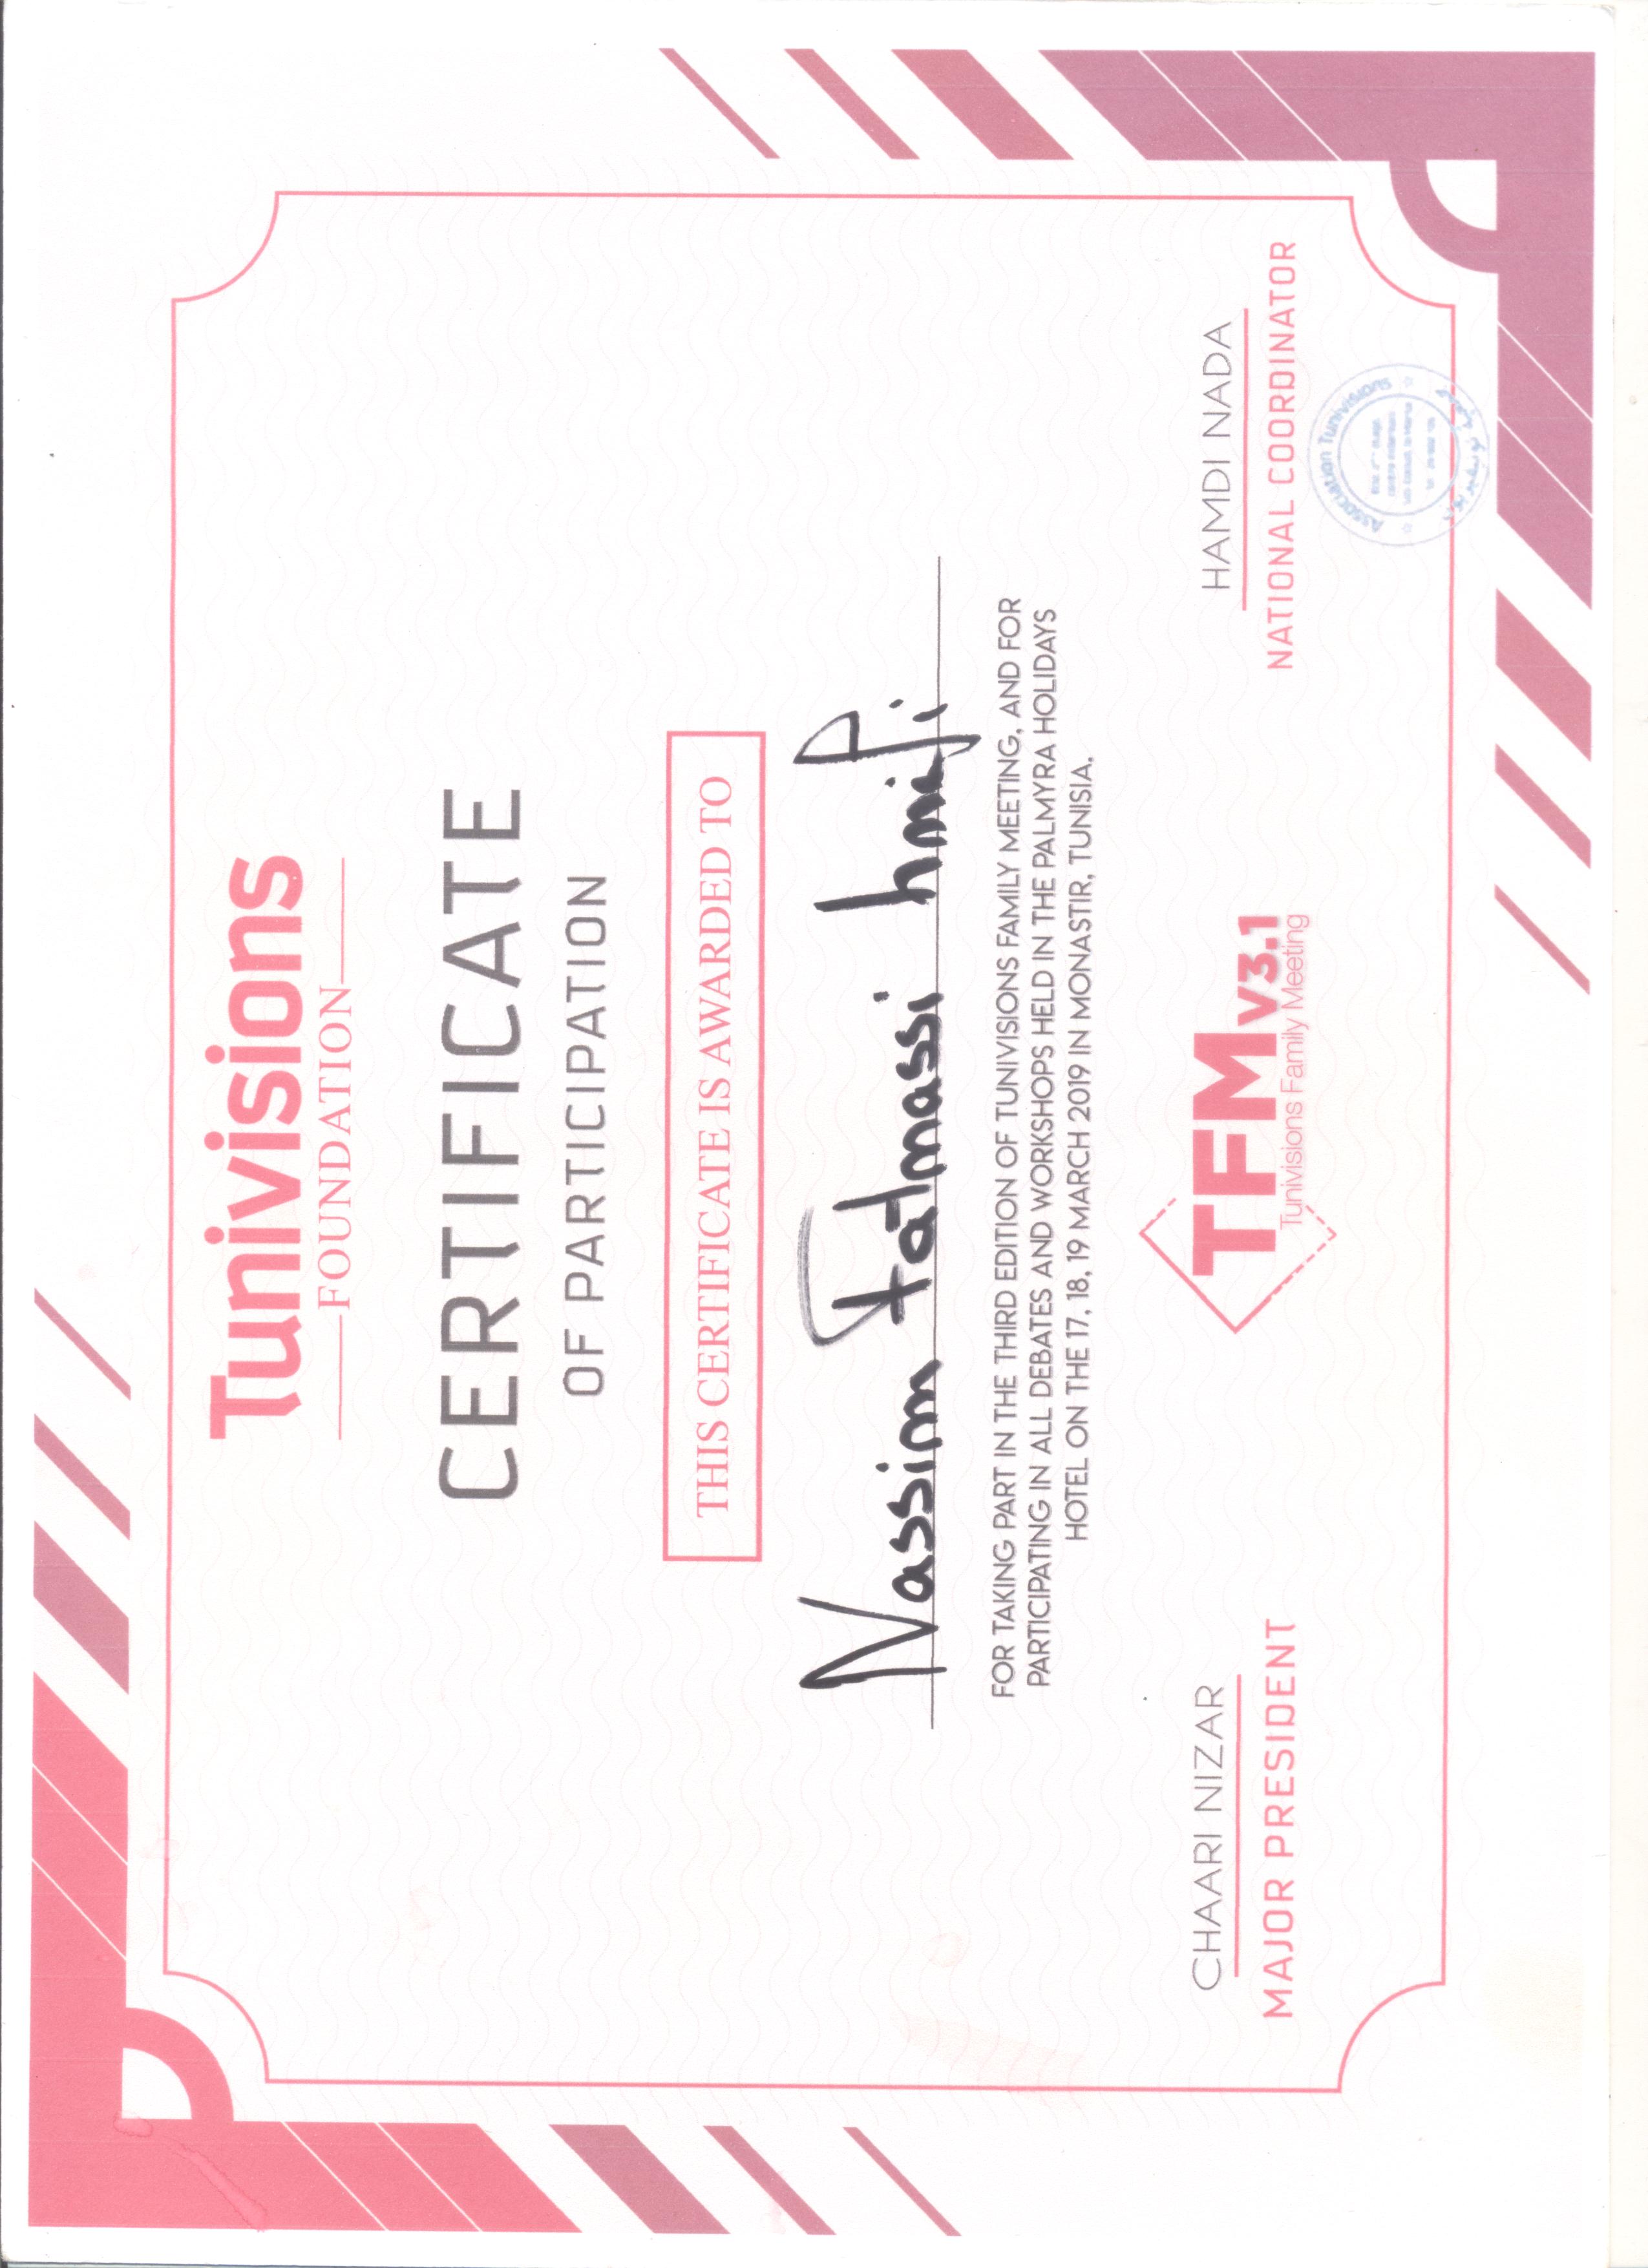 Tunivisions
FOUNDATION
CERTIFICATE
OF PARTICIPATION
THIS CERTIFICATE IS AWARDED TO
Nassim Fatmassi hmifi
FOR TAKING PART IN THE THIRD EDITION OF TUNIVISIONS FAMILY MEETING, AND FOR
PARTICIPATING IN ALL DEBATES AND WORKSHOPS HELD IN THE PALMYRA HOLIDAYS
HOTEL ON THE 17, 18, 19 MARCH 2019 IN MONASTIR, TUNISIA.
CHAARI NIZAR
MAJOR PRESIDENT
TFM V3.1
Tunivisions Family Meeting
HAMDI NADA
NATIONAL COORDINATOR
Association Tunivisions